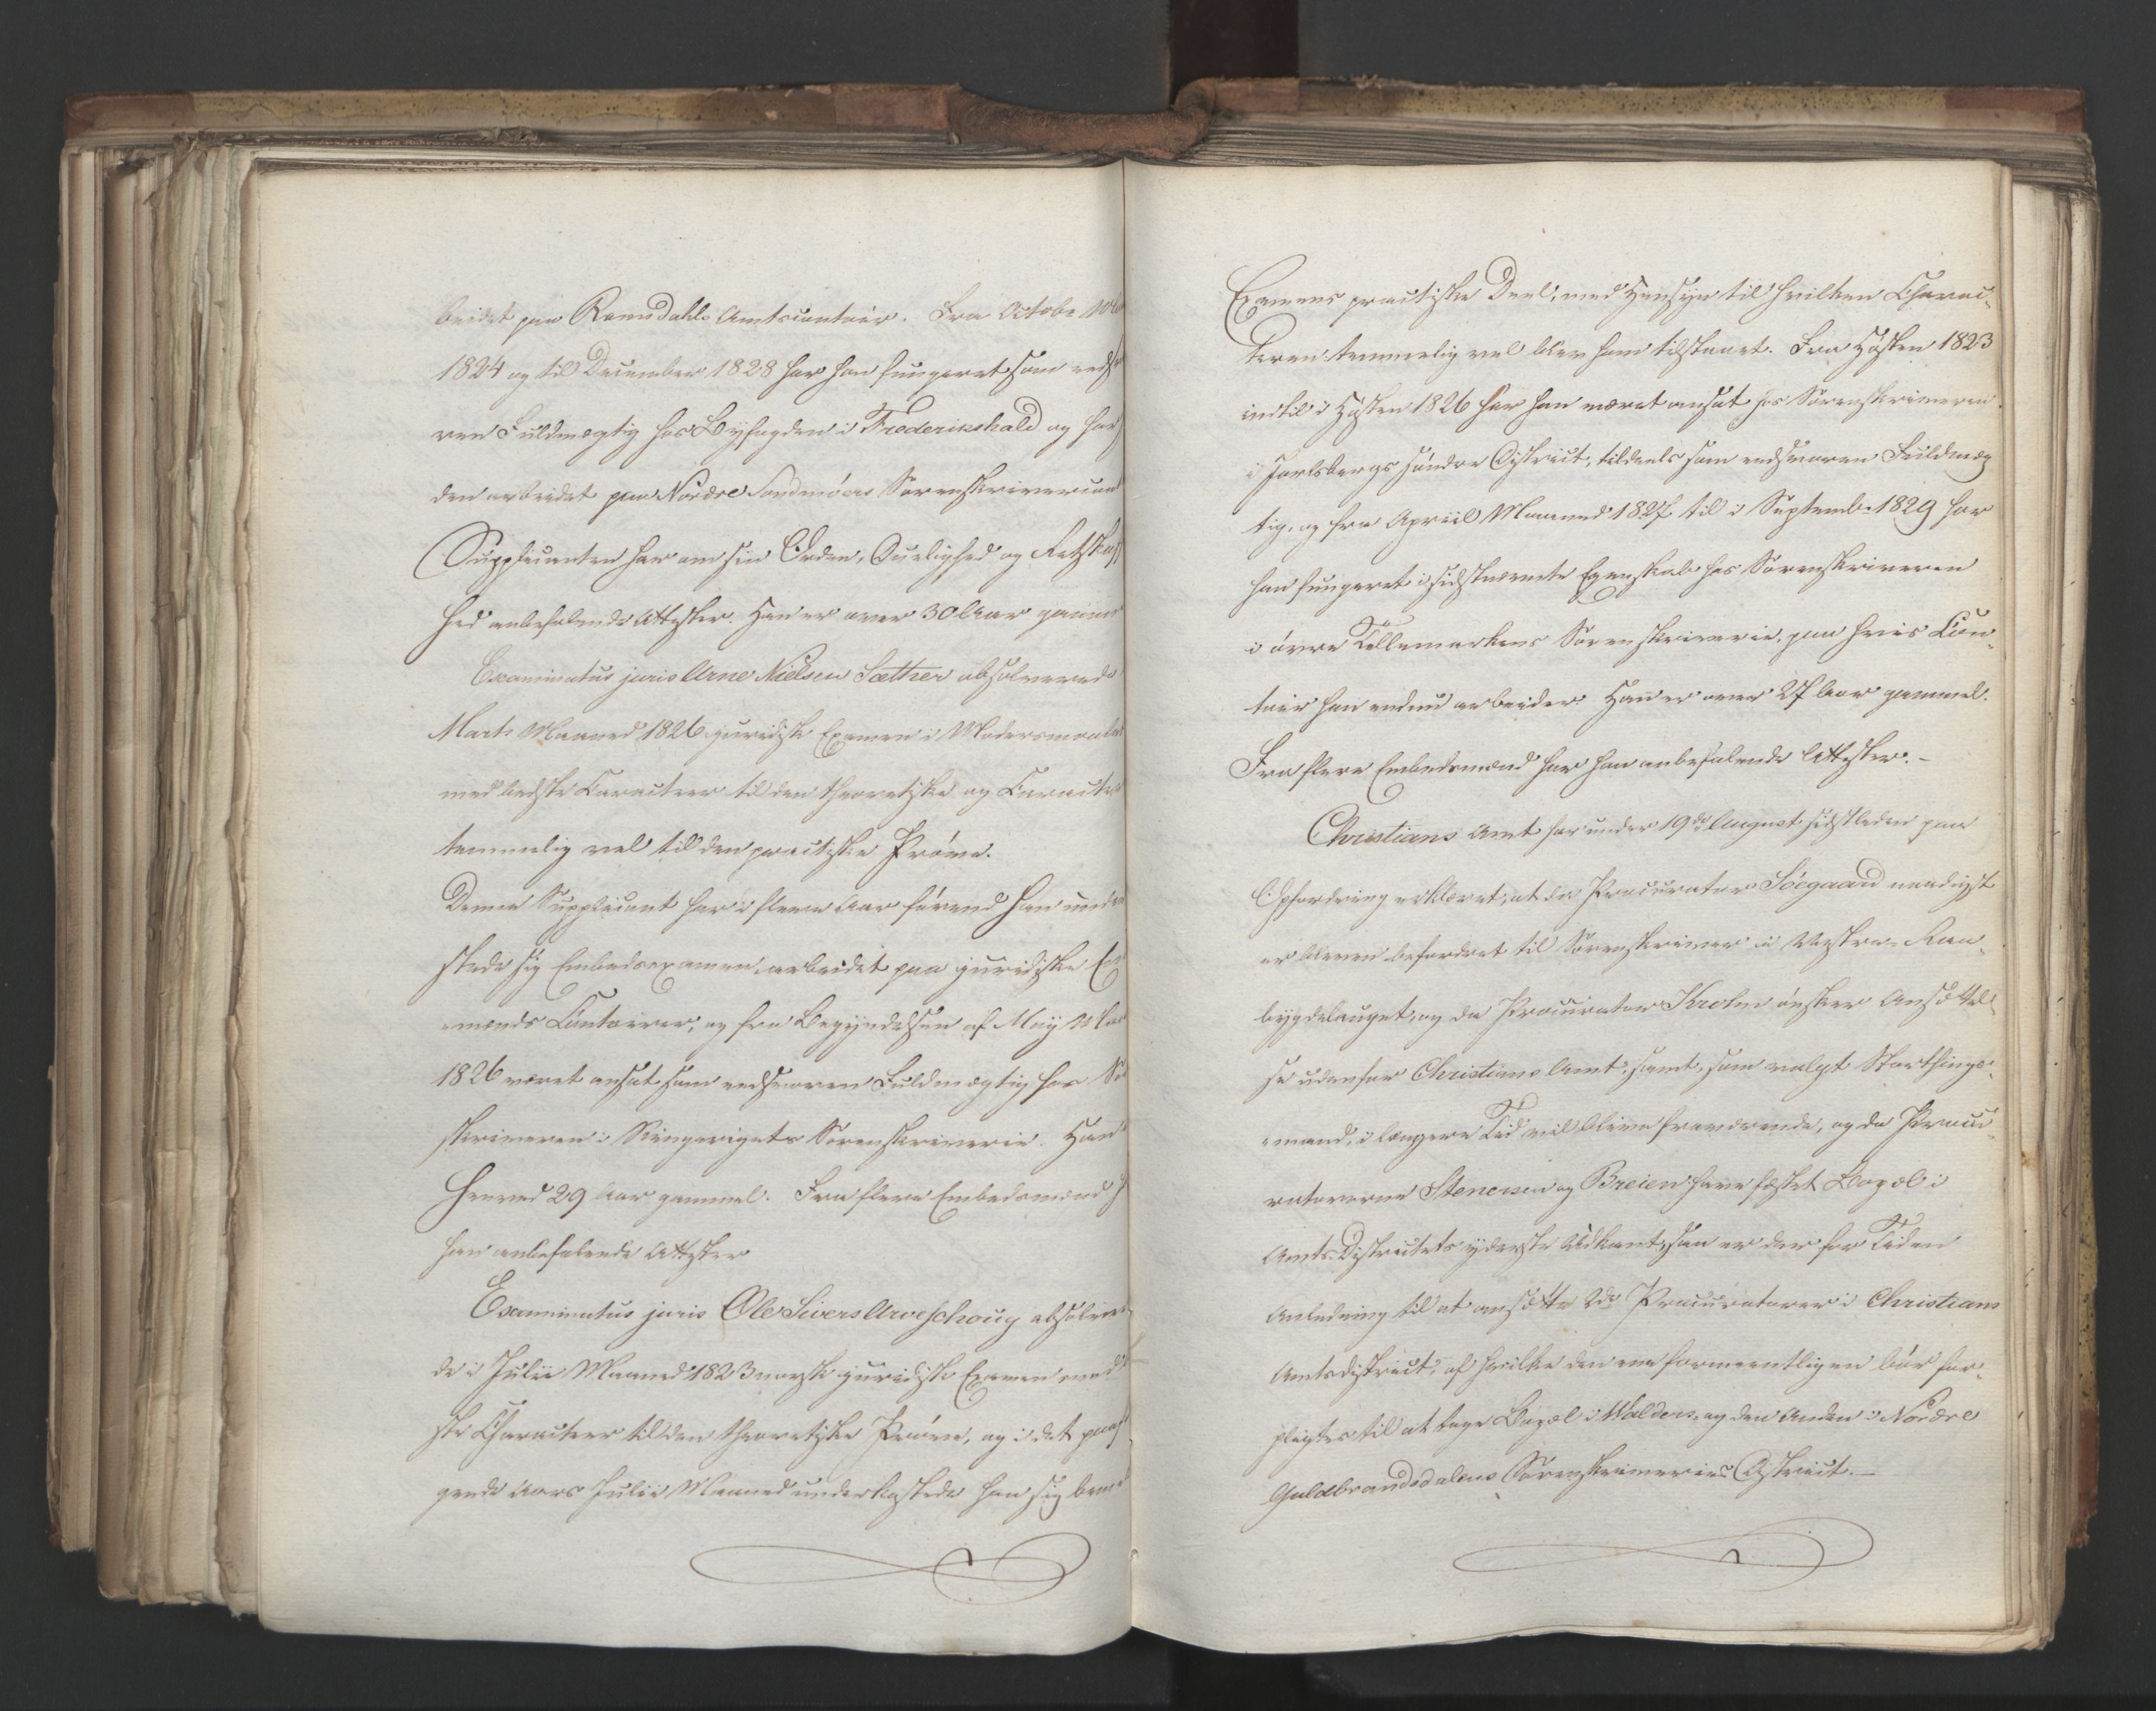 beidet paa Romsdahls Amtscontoir. Fra Octobr
1824 og til December 1828 har han fungeret som edsvo
ren Fuldmægtig hos Byfogden i Frederikshald og har
den arbeidet paa Nordre Søndmöers Sorenskrivercon
Supplicanten har om sin Orden, Duelighed og Retskaf
hed anbefalende Attester. Han er over 30 Aar gamm
Examinatus juris Arne Nielsen Sæther absolverede
Marts Maaned 1826 juridisk Examen i Modersmaalet
med bedste Caracteer til den theoretiske og Caracter
temmelig vel til den practiske Pröve.
Denne Supplicant har i flere Aar förend han under
stede sig Embedsexamen, arbeidet paa juridiske Em
mænds Contoirer, og fra Begyndelsen af May
1826 været ansat som edsvoren Fuldmægtig hos So
skriveren i Ringerigets Sorenskriverie. Han
henved 29 Aar gammel. Fra flere Embedsmænd h
han anbefalende Attester
Examinatus juris Ole Sivers Aroeschoug absolvere
de i Julii Maaned 1823 norsk juridisk Examen med
ste Characteer til den theoretiske Pröve, og i det paaf
gende Aars Julii Maaned underkastede han sig bem
Examens practiske Deel, med Hensyn til hvilken Charac-
teren temmelig vel blev ham tilstaaet. Fra Hösten 1823
indtil i Hösten 1826 har han været ansat hos Sorenskriveren
i Jarlsbergs söndre District, tildeels som edsvoren Fuldmæg
tig, og fra April Maaned 1827 til i Septembr 1829 har
han fungeret i sidstnævnte Egenskab hos Sorenskriveren
i övre Tellemarkens Sorenskriverie, paa hvis Con-
toir han endnu arbeider. Han er over 27 Aar gammel.
Fra flere Embedsmænd har han anbefalende Attester.-
Christians Amt har under 19de August sidstleden paa
Opfordring erklæret, at da Procurator Söegaard naadigst
er bleven befordret til Sorenskriver i Vestre- Raa-
bygdelauget, og da Procurator Krohn önsker Ansættel-
se udenfor Christians Amt, samt, som valgt Storthings-
mand, i længere Tid vil blive fraværende, og da Procu
ratorerne Stenersen og Breien have fæstet Bopæl i
Amts Districtets yderste Udkant, saa er der for Tiden
Anledning til at ansætte 2de Procuratorer i Christians
Amtsdistrict, af hvilke den ene formeentligen bör for-
pligtes til at tage Bopæl i Walders, og den Anden i Nordre
Guldbrandsdalens Sorenskriveries District.-